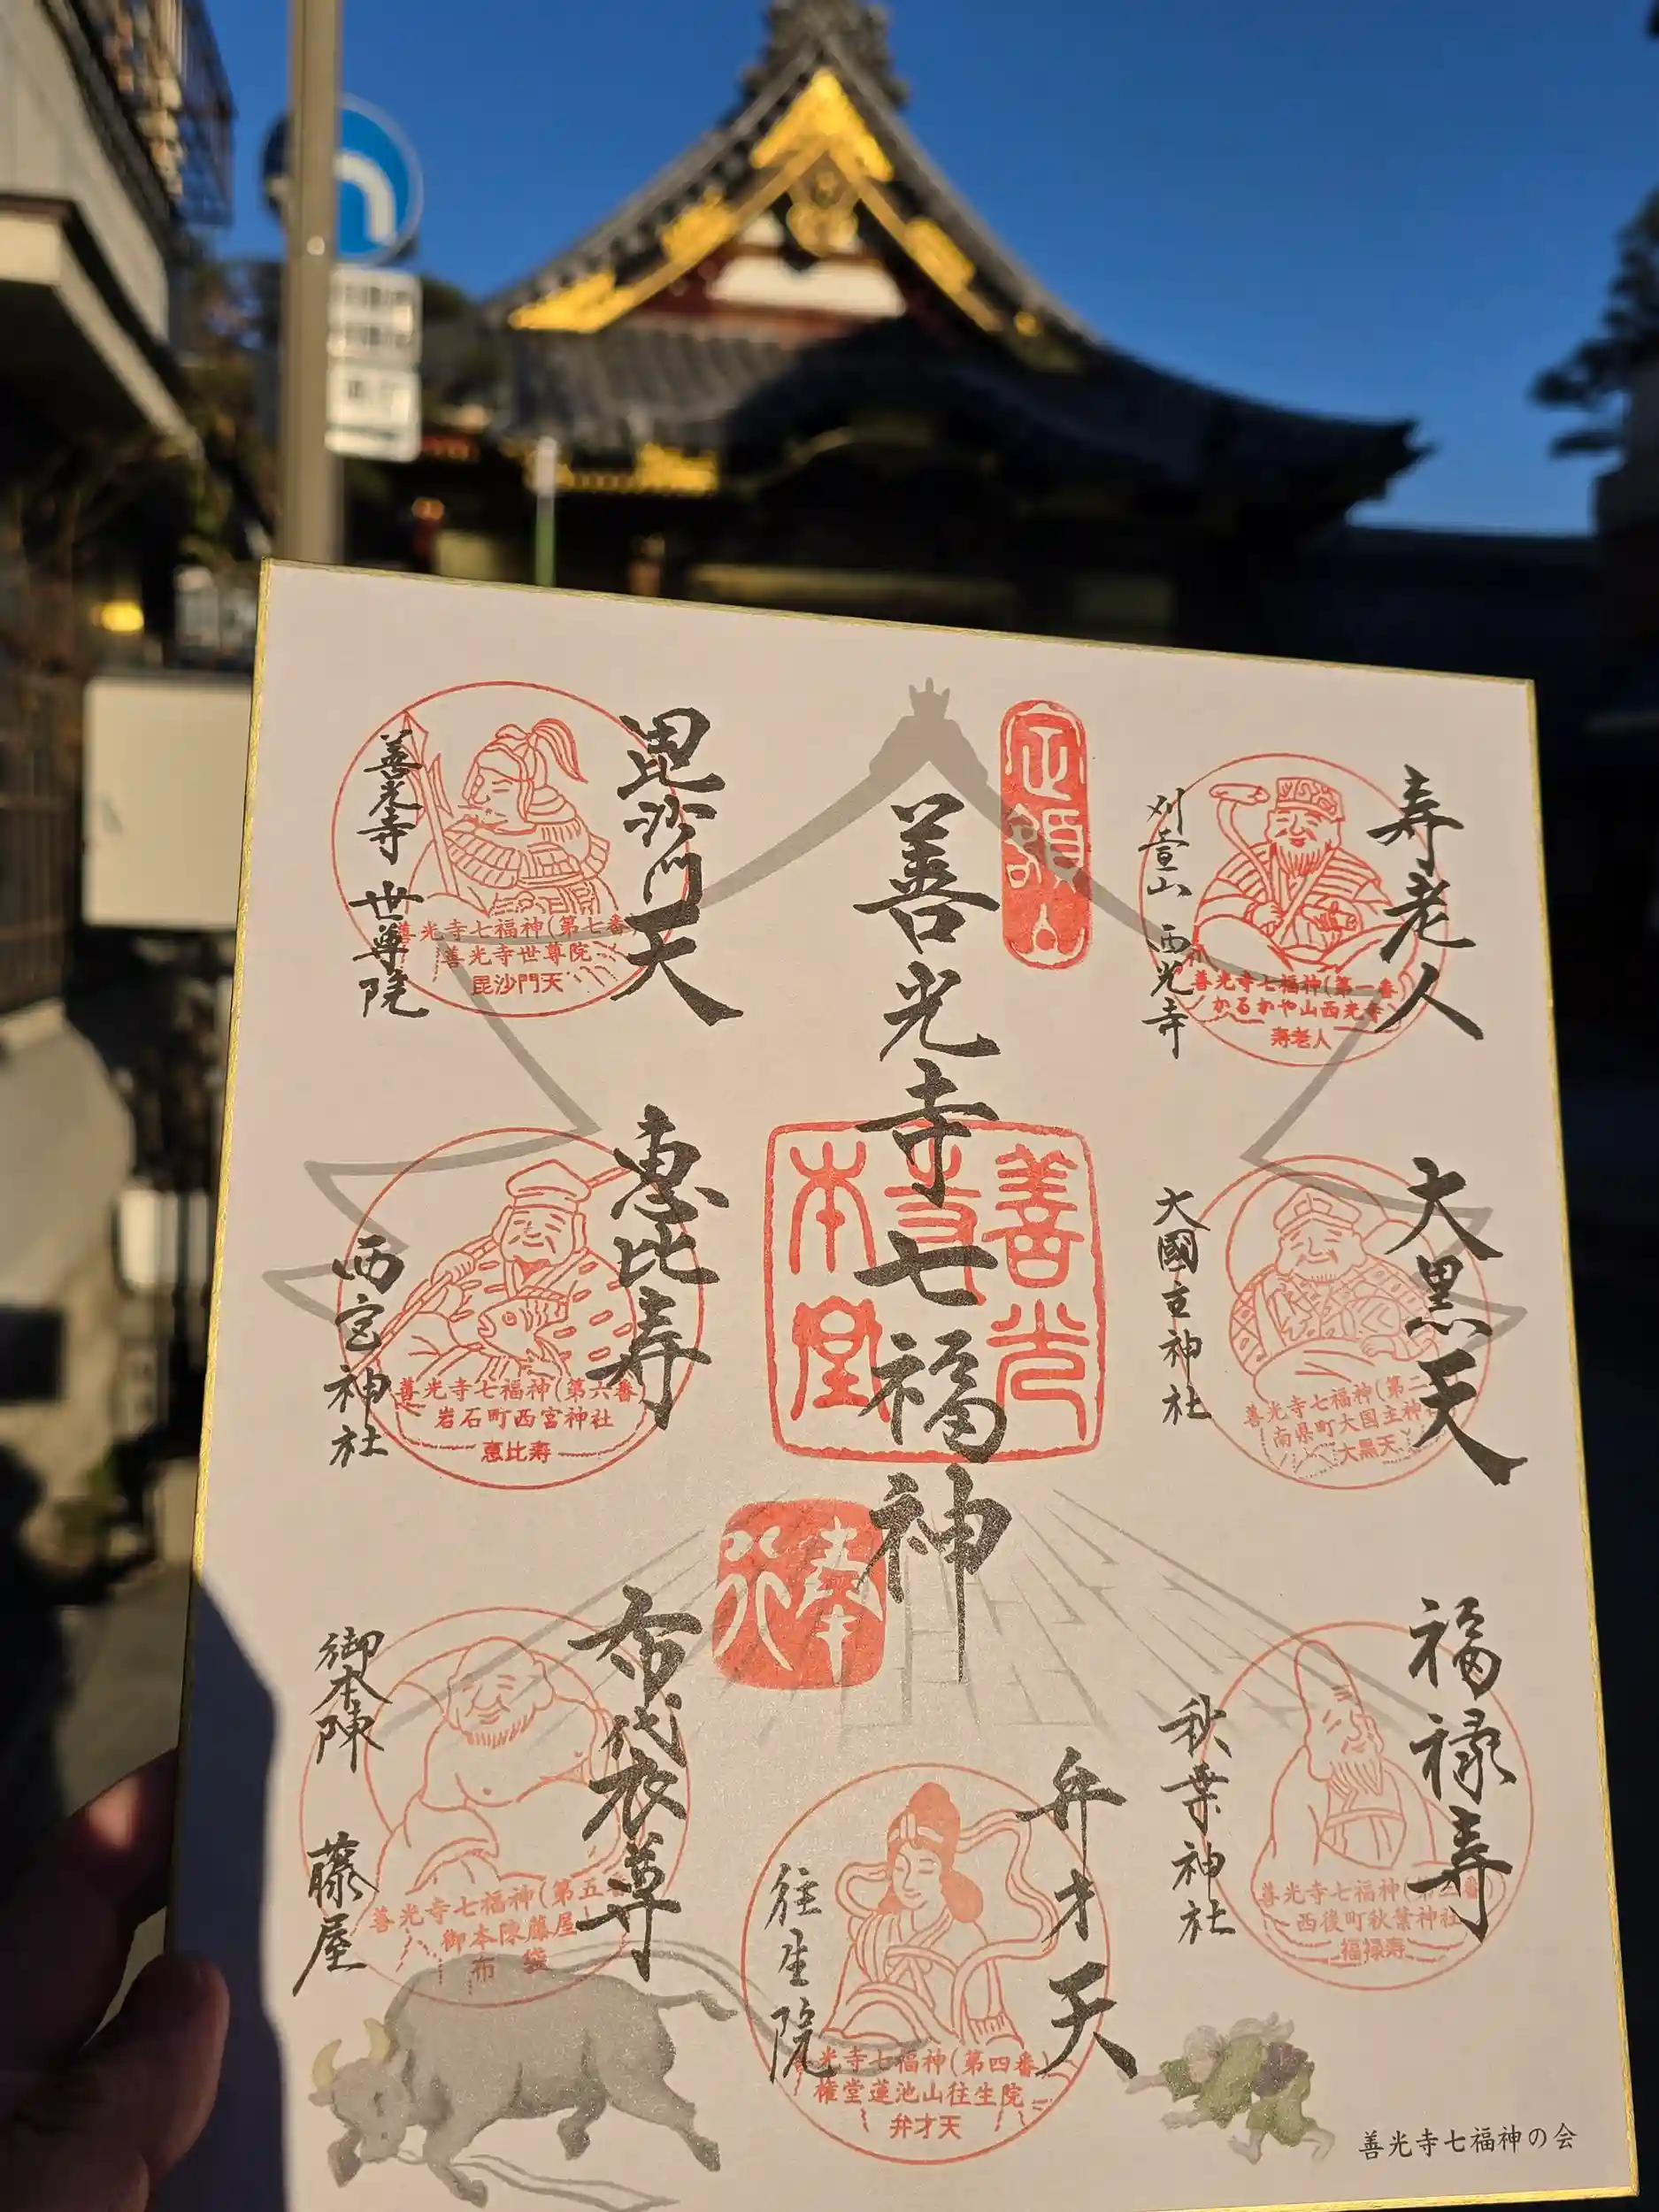 善光寺七福神
定額山
善光寺本堂
奉拝
寿老人
刈萱山 西光寺
善光寺七福神(第一番)
かるかや山西光寺
寿老人
大黒天
大國主神社
善光寺七福神(第二
南県町大国主神社
大黒天
福禄寿
秋葉神社
善光寺七福神(第三番)
西後町秋葉神社
福禄寿
弁才天
往生院
善光寺七福神(第四番)
権堂蓮池山往生院
弁才天
布袋尊
御本陳 藤屋
善光寺七福神(第五
御本陳藤屋
布袋
恵比寿
西宮神社
善光寺七福神(第六番)
岩石町西宮神社
恵比寿
毘沙門天
善光寺 世尊院
善光寺七福神(第七番)
善光寺世尊院
毘沙門天
善光寺七福神の会